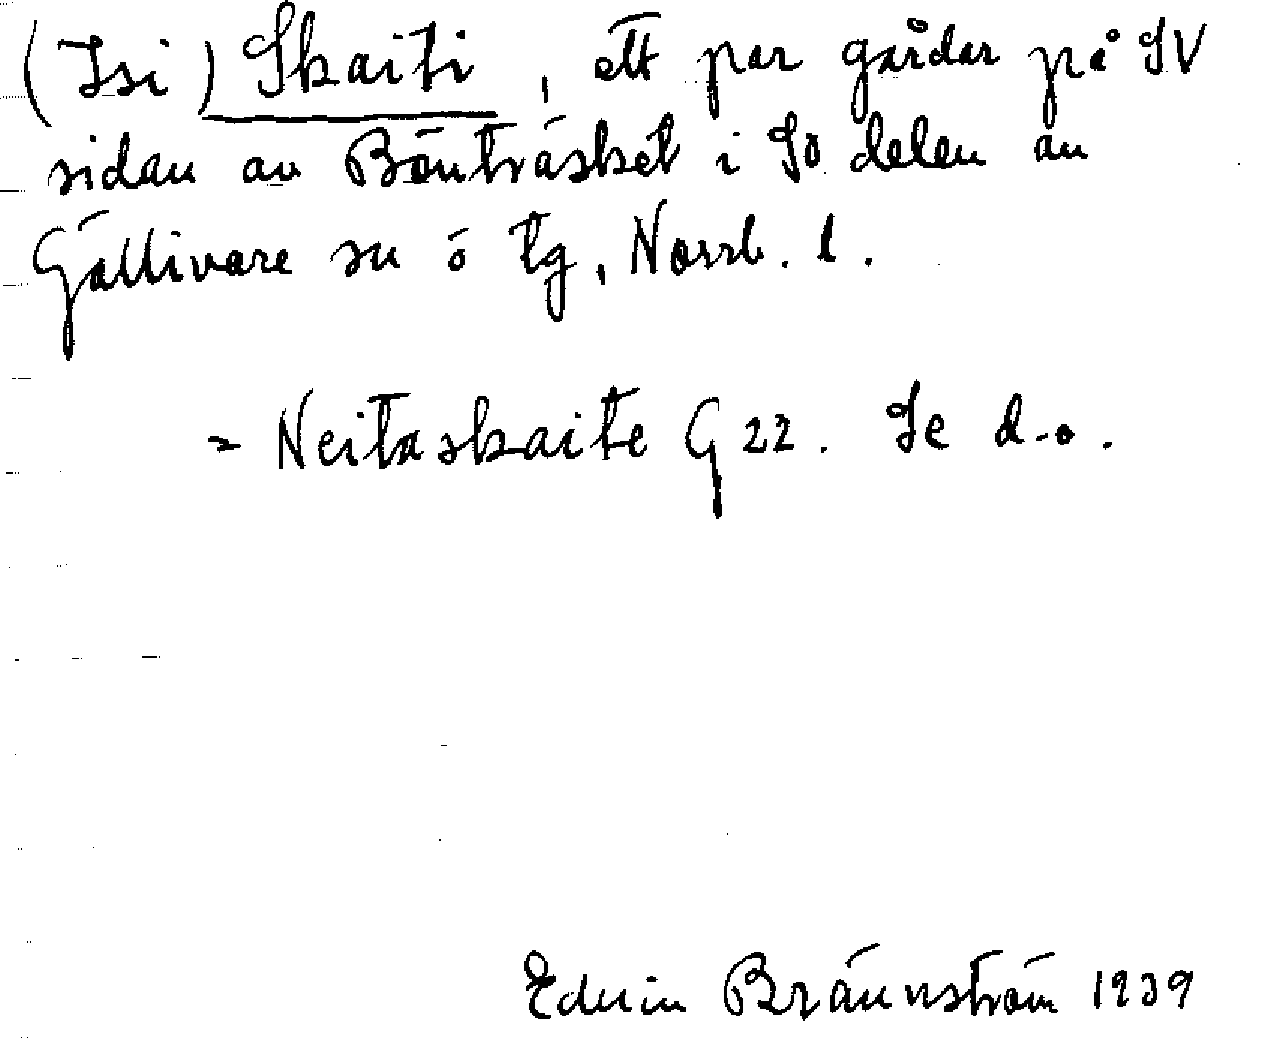 (Isi) Skaiti, ett par gårdar på SV
sidan av Bönträsket i Sö delen av
Gällivare sn ö tg, Norrb. l.
= Neitaskaite G 22. Se d.o.
Edvin Brännström 1939